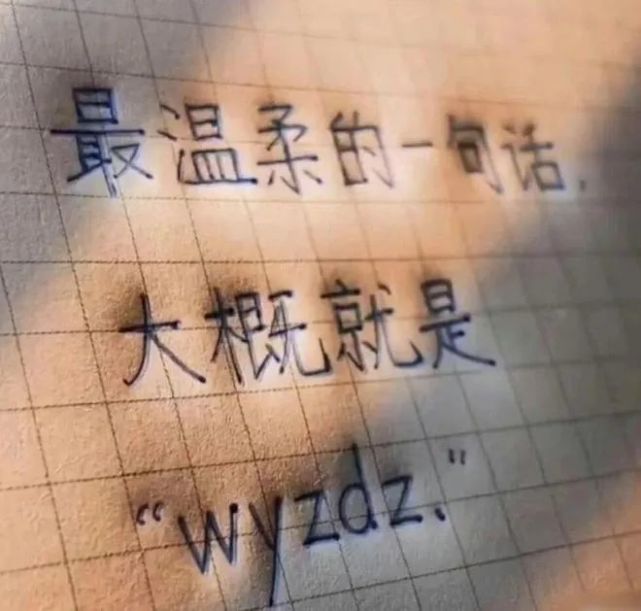 最温柔的一句话.
大概就是
“wyzdz.”